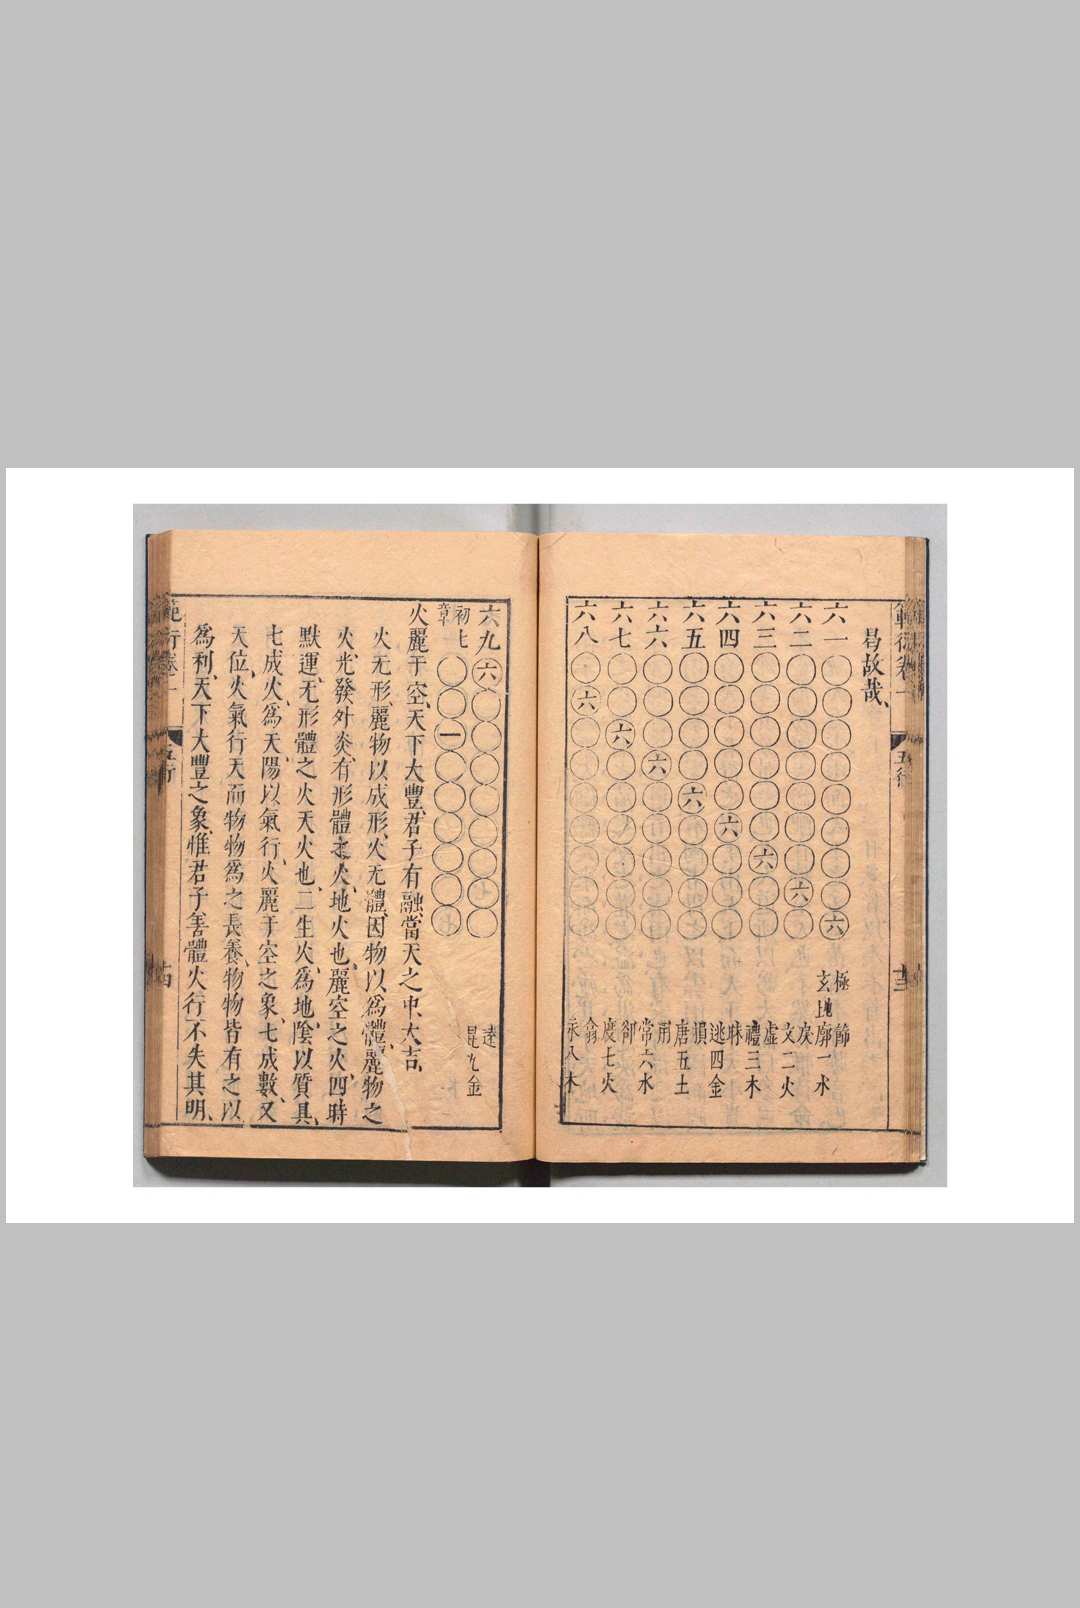 曷故哉、
六一 六 極節
六二 六 玄地廓一水
六三 六 戾文二火
六四 六 虛禮三木
六五 六 昧逃四金
六六 六 損唐五土
六七 六 用常六水
六八 六 郤度七火
翕永八木
五行
六九 六 達昆九金
初七
章 一
火麗于空、天下大豐、君子有融、當天之中、大吉、
火无形、麗物以成形、火无體、因物以爲體、麗物之
火、光發外炎、有形體之火、地火也、麗空之火、四時
默運、无形體之火、天火也、二生火、爲地陰、以質具、
七成火、爲天陽、以氣行、火麗于空之象、七成數、又
天位、火氣行天、而物物爲之長養、物物皆有之以
爲利、天下大豐之象、惟君子善體火行、不失其明、